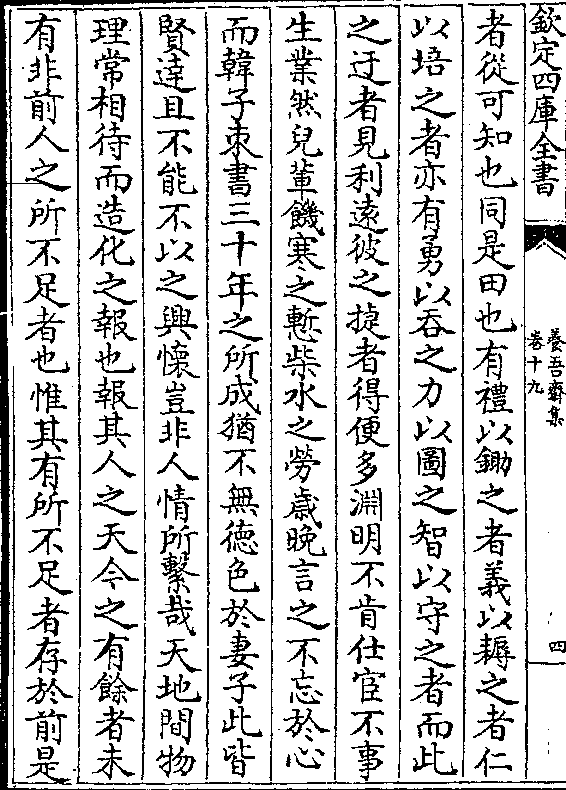 欽定四庫全書
養吾齋集
卷十九
四
者從可知也同是田也有禮以鋤之者義以耨之者仁
以培之者亦有勇以吞之力以圖之智以守之者而此
之迂者見利遠彼之㨗者得便多淵明不肯仕宦不事
生業然兒軰饑寒之慙柴水之勞歲晚言之不忘於心
而韓子朿書三十年之所成猶不無徳色於妻子此皆
賢達且不能不以之興懷豈非人情所繫哉天地間物
理常相待而造化之報也報其人之天今之有餘者未
有非前人之所不足者也惟其有所不足者存於前是